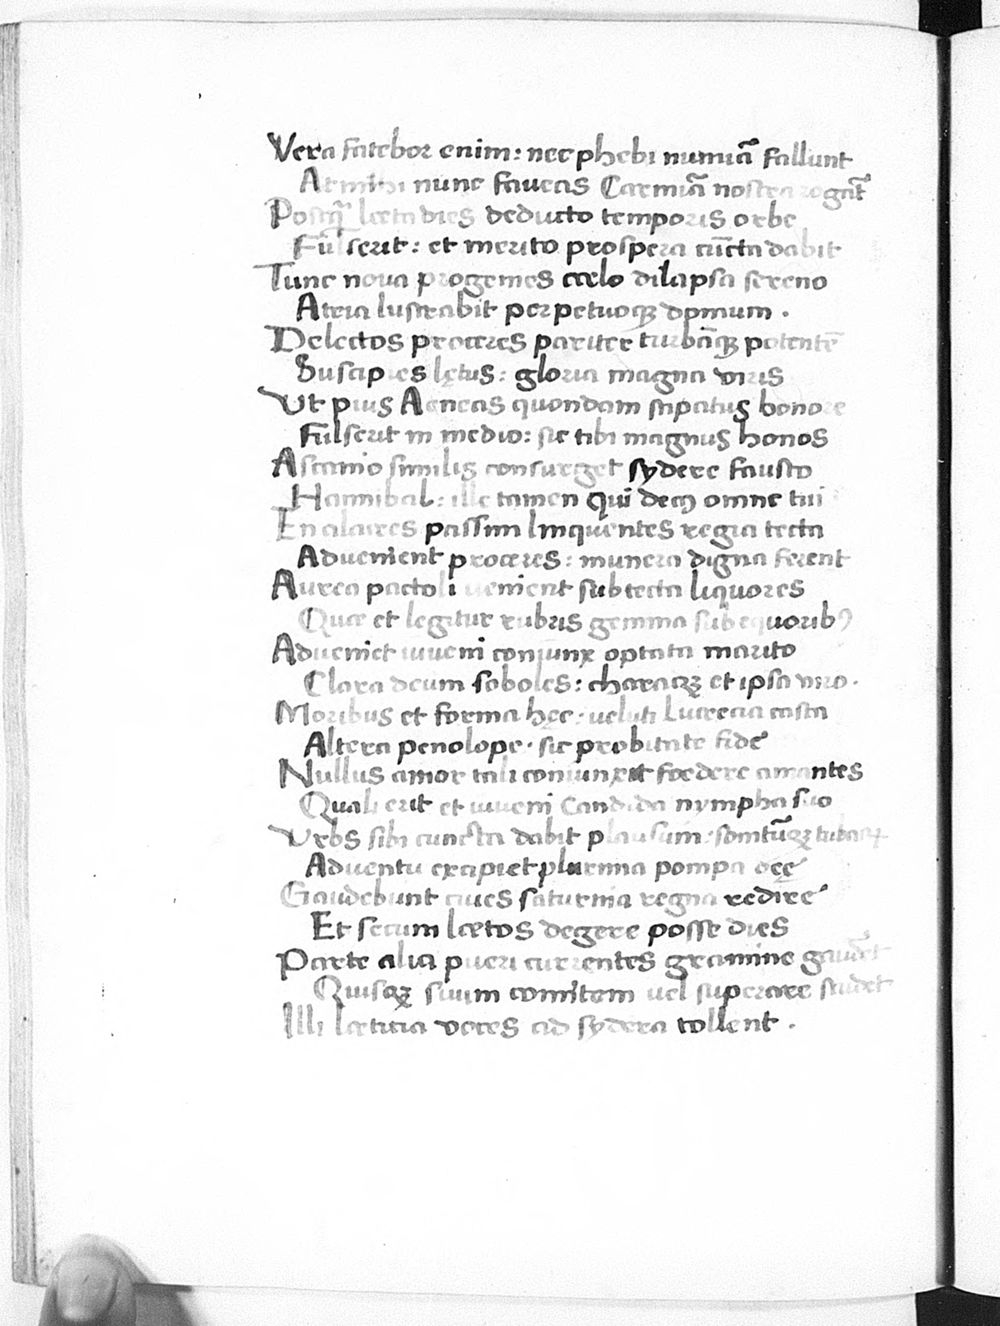 Vera fatebor enim: nec phebi numīa fallunt
At mihi nunc faveas Carmīa nostra rogāt
Postq̄ læta dies deducto temporis orbe
Fulserit: et merito prospera cūcta dabit
Tunc nova progenies cœlo dilapsa sereno
Atria lustrabit perpetuoqꝫ domum.
Delectos proceres pariter turbāqꝫ potentē
Suscipies lętus: gloria magna viris
Ut pius Aeneas quondam stipatus honore
Fulserit in medio: sic tibi magnus honos
Ascanio similis consurget sydere fausto
Hannibal: ille tamen qui decꝰ omne tui
En alacres passim linquentes regia tecta
Advenient proceres: munera digna ferent
Aurea pactoli venient sub tecta liquores
Quæ et legitur rubris gemma sub equoribꝰ
Adveniet iuveni coniunx optata marito
Clara deum soboles: charaqꝫ et ipsa viro.
Moribus et forma hęc. veluti Lucrecia casta
Altera penolope. sic probitate fide
Nullus amor tali coniunxit foedere amantes
Quali erit et iuveni Candida nympha suo
Urbs sibi cuncta dabit plausum: somtūqꝫ tubarꝝ
Adventu excipiet plurima pompa
Gaudebunt cives saturnia regna redire
Et secum lœtos degere posse dies
Parte alia pueri currentes gramine gaudēt
Quisqꝫ suum comitem vel superare studet
Illi lætitia voces ad sydera tollent.